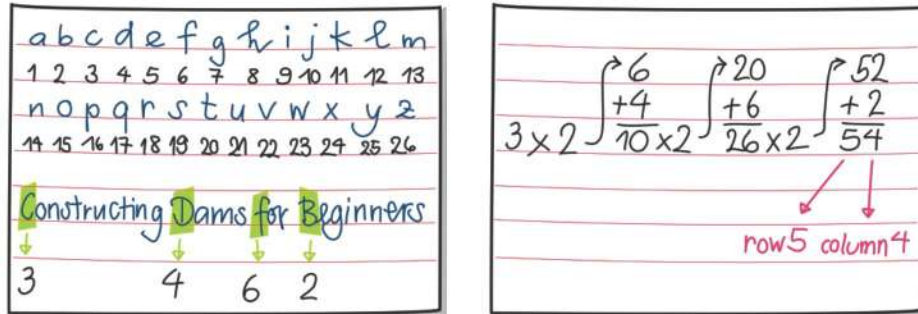 a b c d e f g h i j k l m
1 2 3 4 5 6 7 8 9 10 11 12 13
n o p q r s t u v w x y z
14 15 16 17 18 19 20 21 22 23 24 25 26
Constructing Dams for Beginners
3 4 6 2
6 20 52
+4 +6 +2
3 x 2 10 x 2 26 x 2 54
row 5 column 4